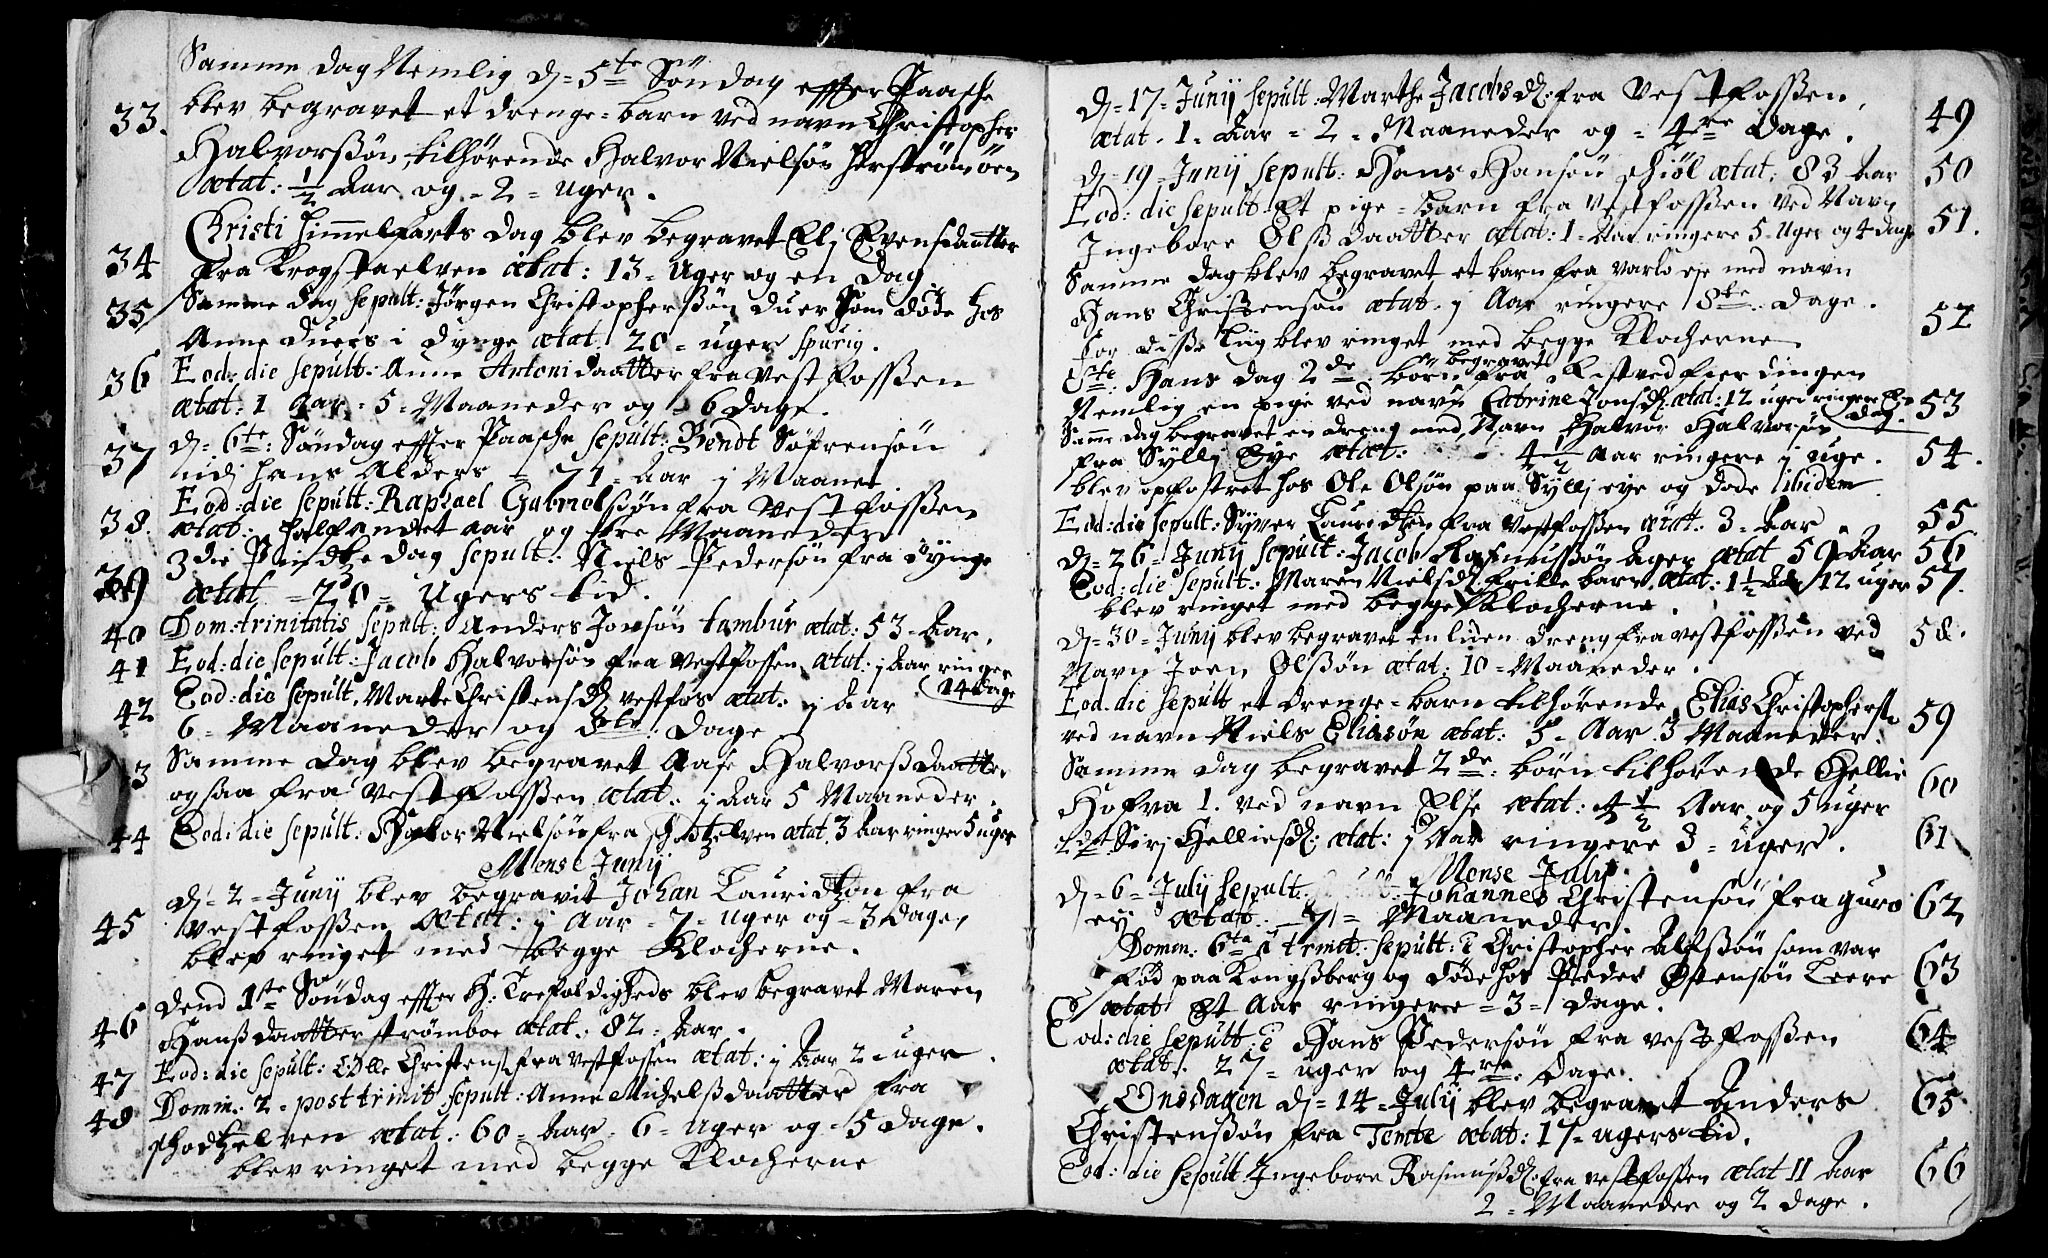 Samme dag Nemlig d= 5te Söndag effter Paasche
33. blev begravet et drenge=barn ved navn Christopher
Halvorßön tilhörende Halvor Nielsön
ætat: 1/2 Aar og = 2 = Uger.
Christi Himmelfarts dag blev begravet Evensdaatter
34 fra Krogstaelven ætat: 13 = Uger og en dag
35 Samme dag sepult: Jörgen Christopherßön duer som döde hos
Anne duers i dynge ætat. 20 = uger spurig.
36 Eod: die sepult: Anne Antonidaatter fra Vestfossen
ætat: 1 Aar = 5 = Maaneder og = 6 dage.
37 d= 6te: Söndag effter Paasche sepult: Bendt Söfrensön
udj hans Alders = 71 = Aar j Maanet
38. Eod: die sepult: Raphael Gabrielsön fra Vestfossen
ætat: halfandet aar og tre Maaneder
39 3die Pindtze dag sepult: Niels Pedersön fra dynge
ætat = 20 = Ugers tid.
40 Dom: trinitatis sepult: Anders Jonsön tambur ætat: 53 = Aar.
41 Eod: die sepult: Jacob Halvorsön fra Vestfossen ætat: j Aar ringer
14 dage
42 Eod: die sepult. Marte Christensd: vestfos ætat: j Aar
6 = Maaneder og dage
Samme dag blev begravet Aase Halvorßdaatter
3 ogsaa fra Vestfossen ætat: j Aar 5 Maaneder.
44 Eod: die sepult: Halvor Nielsön fra schotzelven ætat 3 Aar ringer 5 uger
Mense Junij
d= 2 = Junij blev begravit Johan Lauridtzön fra
45 Vestfossen ætat: j Aar = 7 = uger og = 3 dage,
blev ringet med begge Klocherne.
Dend 1ste Söndag effter H: Trefoldigheds blev begravet Maren
46 Hanßdaatter strömboe ætat: 82 = Aar.
47 Eod: die sepult: Olle Christens. fra Vestfossen ætat: j Aar 2 = uger.
48 Domin: 2 = post trinit sepult: Anne Michelßdaatter fra
schodtzelven ætat: 60 = Aar = 6 = Uger og = 5 dage.
blev ringet med begge Klocherne
d= 17 = Junij sepult: Marthe Jacobsd: fra Vestfossen, 49
ætat. 1 = Aar = 2 = Maaneder og = 4re dage.
d= 19 = Junij sepult: Hans Hansön schiöl ætat: 83 Aar 50
Eod: die sepult Et pige=barn fra Vestfossen ved Navn
Ingebore Olßdaatter ætat: 1 = Aar ringere 5 = Uger og 4 dage 51.
Samme dag blev begravet et barn fra varlo eje med navn
Hans Christensön ætat. j Aar ringere 8te dage. 52
for disse Liig blev ringet med begge Klocherne
Ste Hans dag 2de börn begravet fra Kist ved fierdingen
Nemlig en pige ved navn Catrine Jonsd: ætat: 12 uger ringere 53
dag.
Samme dag begravet en dreng med Navn Halvor Halvorsön
fra Sylli Eye ætat: 4 1/2 Aar ringere j uge. 54.
blev opfostret hos Ole Olsön paa Sylli eye og döde ibidem
Eod: die sepult: Syver Lauridtzen fra Vestfossen ætat: 3 = Aar 55
d= 26 = Junij sepult: Jacob Rasmussön Ager ætat 50 Aar 56
Eod: die sepult: Maren Nielsd: ætat: 1 1/2 Aar 12 uger 57.
blev ringet med begge Klocherne.
d= 30 = Junij blev begravet en liden dreng fra vestfossen ved 58.
Navn Joen Olßön ætat: 10 = Maaneder.
Eod. die sepult et drenge=barn tilhörende Elias Christophers
ved navn Niels Eliasön ætat: 5 = Aar. 3 Maaneder. 59
Samme dag begravet 2de börn tilhörende Hellie
Hofva 1. ved navn Else ætat: 4 1/2 Aar og 5 uger 60
Sirj Helliesd: ætat: j Aar ringere 3 = uger. 61
Mense Julij.
d= 6 = Julij sepult: Johannes Christensön fra guro
eij ætat. 7 = Maaneder. 62
Domin: 6ta a trinit: sepult: Christopher Alfßön som var
föd paa Kongsßberg og döde hos Peder Östensön Leere 63
ætat Et Aar ringere = 3 = dage.
Eod: die sepult: Hans Pedersön fra vestfossen 64
ætat: 27 = uger og 4re dage.
Onsdagen d= 14 = Julij blev begravet Anders 65
Christensßön fra Temte ætat: 17 = ugers tid.
Eod: die sepult Ingebore Rasmusßd: fra vestfossen ætat II Aar 66
2 = Maaneder og 2 dage.